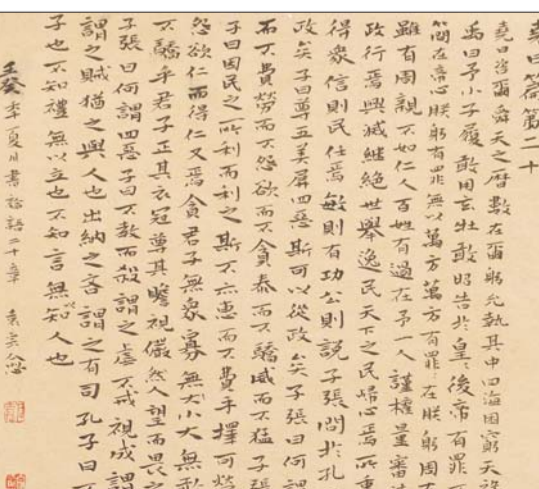 堯曰篇第二十
堯曰咨爾舜天之曆數在爾躬允執其中四海困窮天祿
禹曰予小子履敢用玄牡敢昭告於皇〻後帝有罪不
簡在帝心朕躬有罪無以萬方萬方有罪在朕躬周有
雖有周親不如仁人百姓有過在予一人謹權量審法
政行焉興滅繼絕世舉逸民天下之民歸心焉所重
得眾信則民任焉敏則有功公則說子張問於孔
政矣子曰尊五美屏四惡斯可以從政矣子張曰何謂
而不費勞而不怨欲而不貪泰而不驕威而不猛子張
子曰因民之所利而利之斯不亦惠而不費乎擇可勞
怨欲仁而得仁又焉貪君子無眾寡無小大無敢
不驕乎君子正其衣冠尊其瞻視儼然人望而畏之
子張曰何謂四惡子曰不教而殺謂之虐不戒視成謂
謂之賊猶之與人也出納之吝謂之有司 孔子曰不
子也不知禮無以立也不知言無以知人也
壬癸季夏月書論語二十章